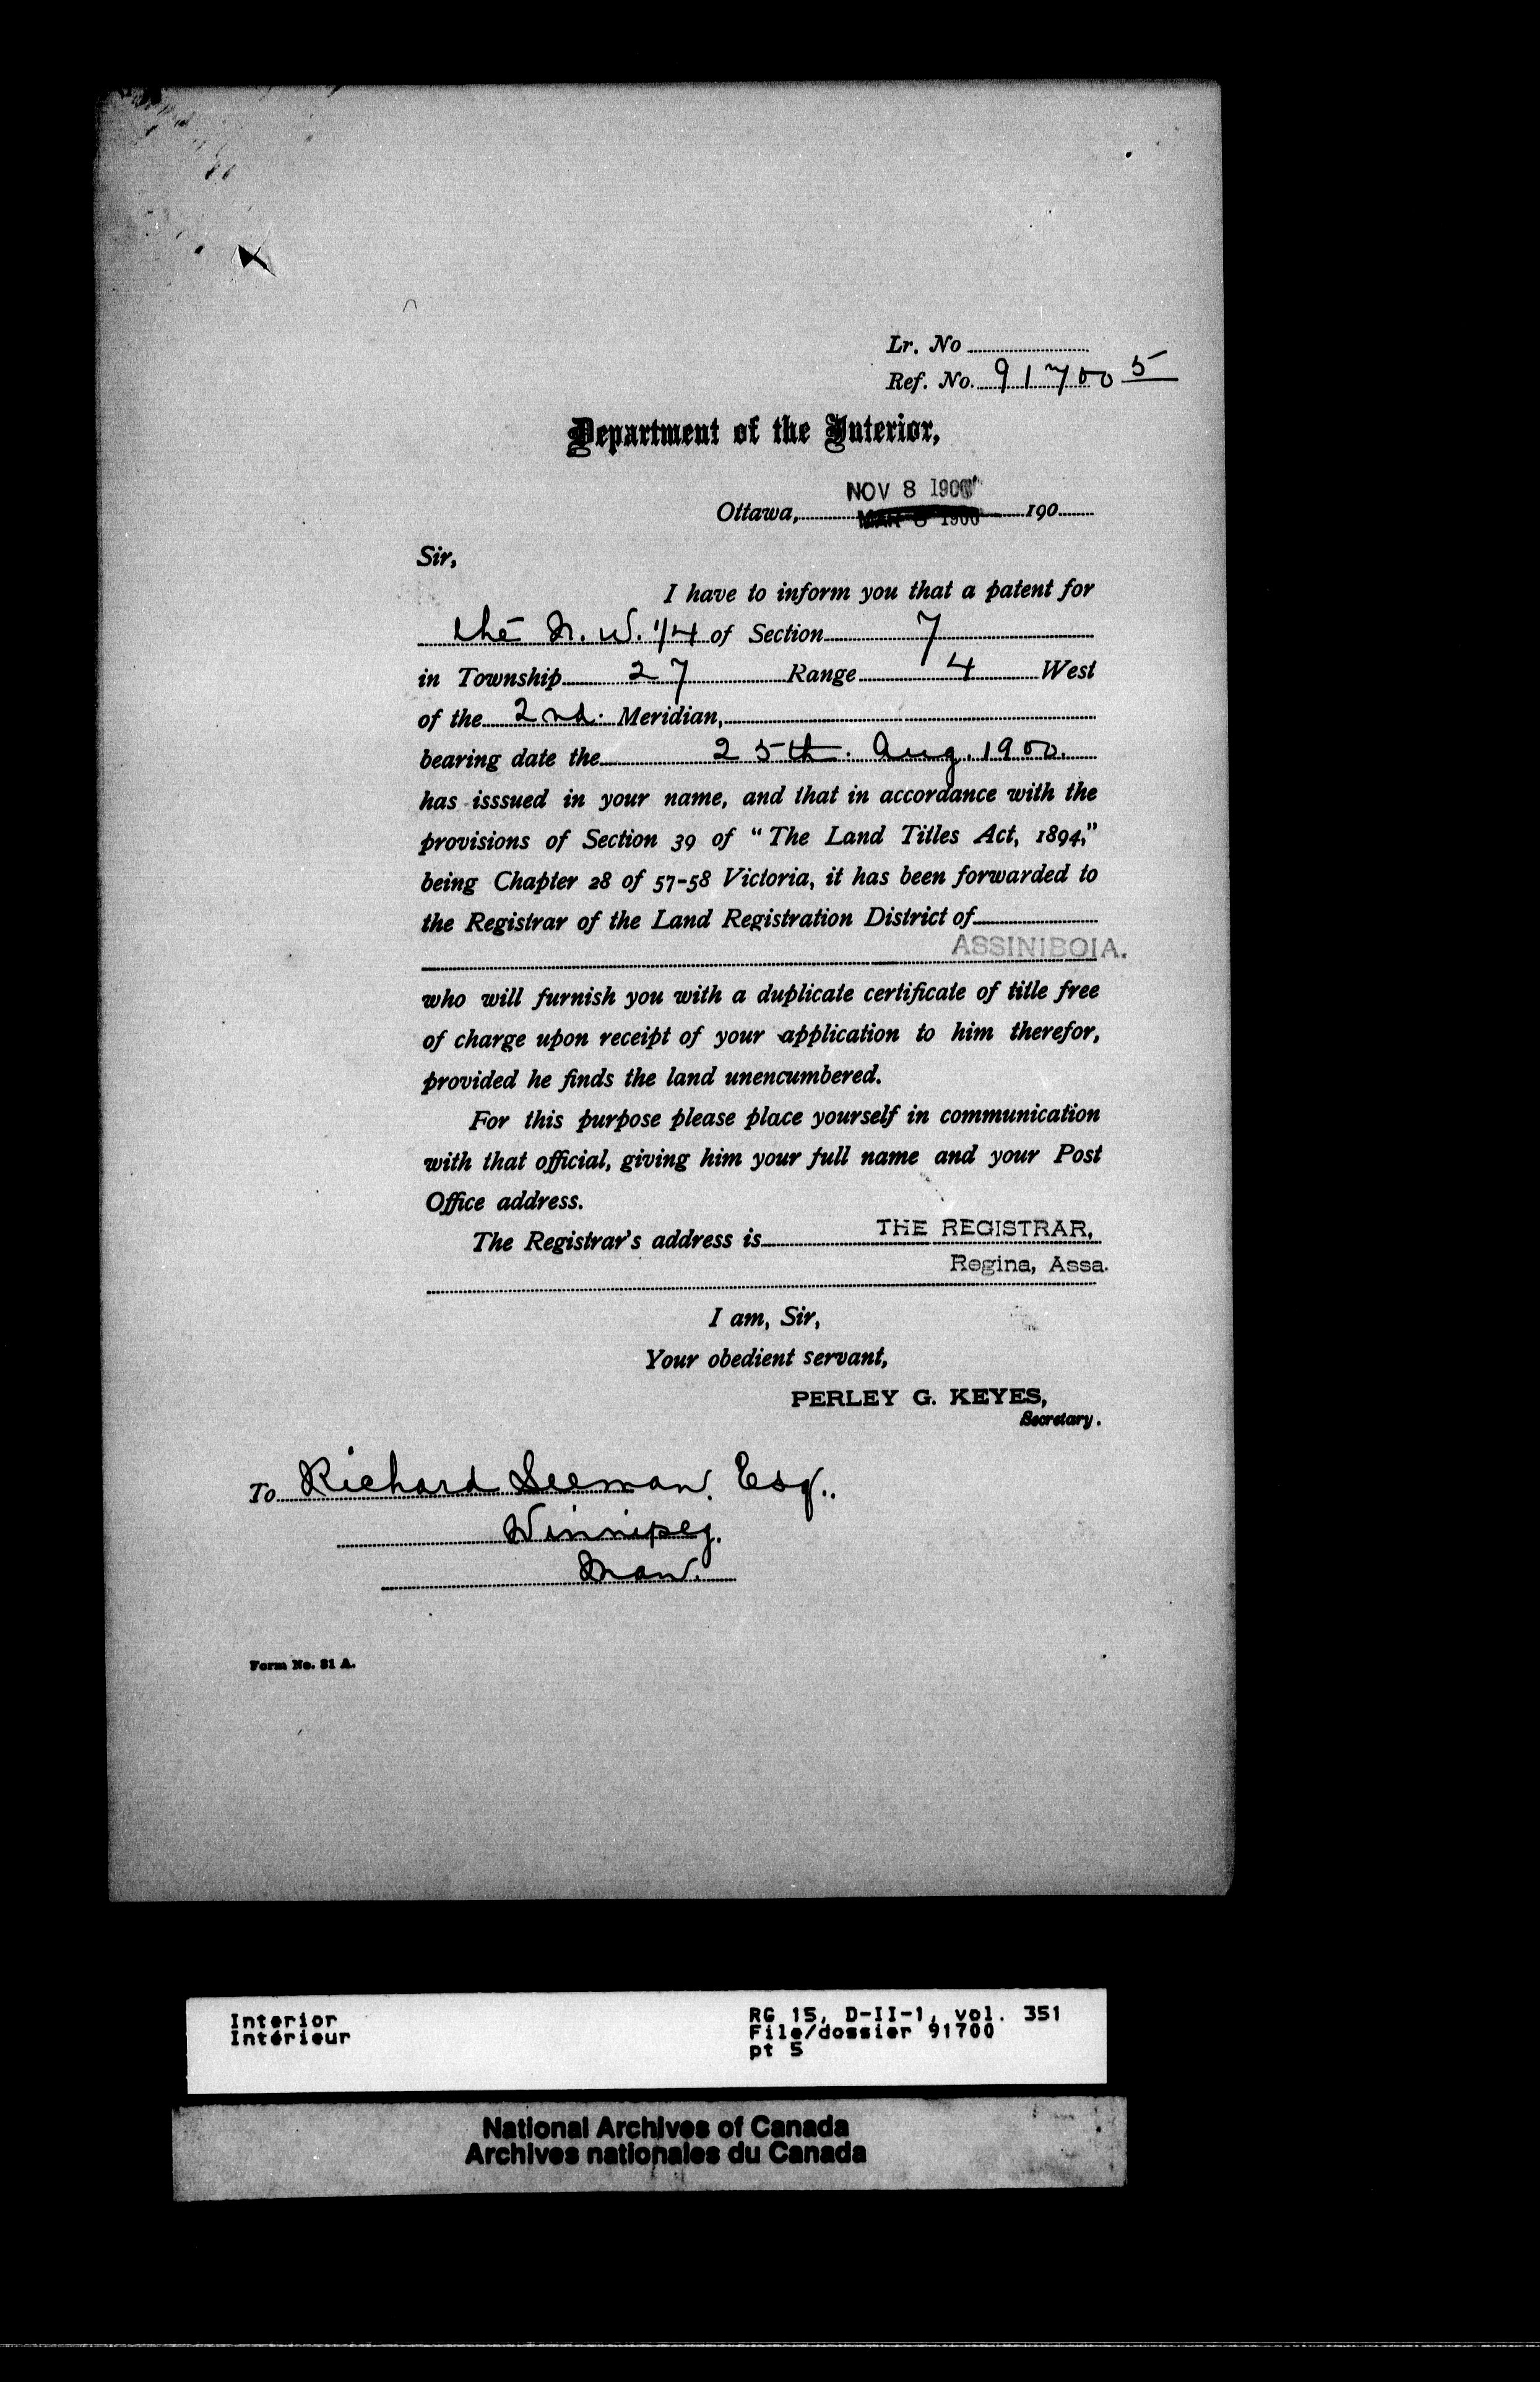 Lr. No
Ref. No. 91700 5
Department of the Interior,
NOV 8 1900
Ottawa, MAR 8 1900 190
Sir,
I have to inform you that a patent for
the N. W. 1/4 of Section 7
in Township 27 Range 4 West
of the 2nd. Meridian,
bearing date the 25th. Aug. 1900.
has isssued in your name, and that in accordance with the
provisions of Section 39 of "The Land Titles Act, 1894,"
being Chapter 28 of 57-58 Victoria, it has been forwarded to
the Registrar of the Land Registration District of
ASSINIBOIA.
who will furnish you with a duplicate certificate of title free
of charge upon receipt of your application to him therefor,
provided he finds the land unencumbered.
For this purpose please place yourself in communication
with that official, giving him your full name and your Post
Office address.
The Registrar's address is THE REGISTRAR,
Regina, Assa.
I am, Sir,
Your obedient servant,
PERLEY G. KEYES,
Secretary.
To Richard Seeman, Esq.
Winnipeg.
Man.
Form No. 31 A.
Interior
Intérieur
RG 15, D-II-1, vol. 351
File/dossier 91700
pt 5
National Archives of Canada
Archives nationales du Canada